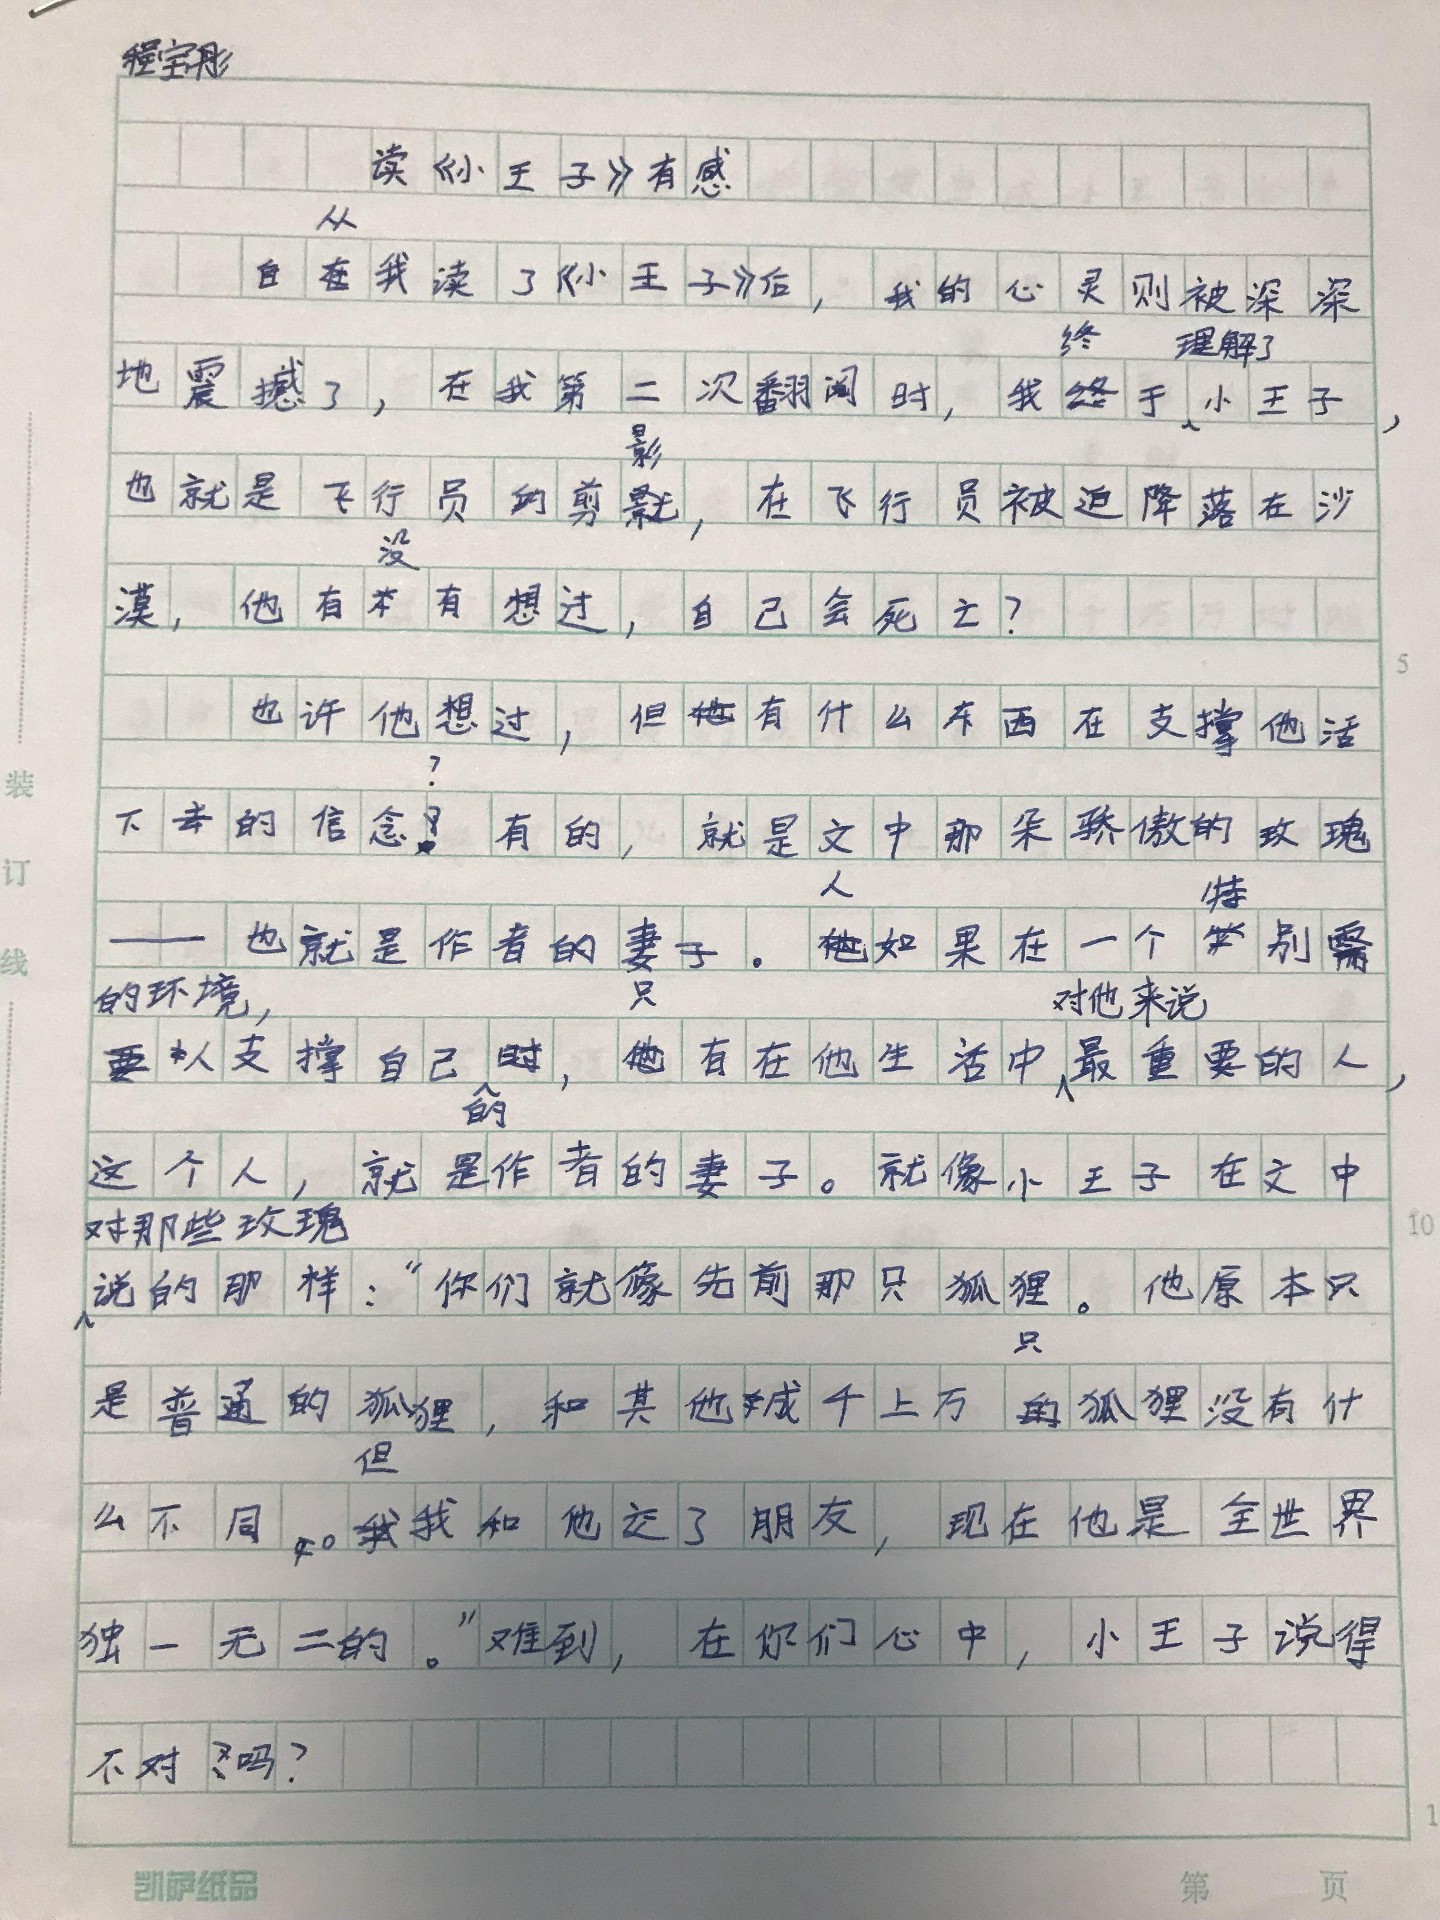 程宝彤
读《小王子》有感
从
自在我读了《小王子》后，我的心灵则被深深
终 理解了
地震撼了，在我第二次翻阅时，我终于小王子，
影
也就是飞行员的剪影，在飞行员被迫降落在沙
没
漠，他有本有想过，自己会死亡？
也许他想过，但他有什么东西在支撑他活
？
下去的信念？有的，就是文中那朵骄傲的玫瑰
人 特
——也就是作者的妻子。他如果在一个别需
的环境， 只 对他来说
要人支撑自己时，他有在他生活中最重要的人，
的
这个人，就是作者的妻子。就像小王子在文中
对那些玫瑰
说的那样：“你们就像先前那只狐狸。他原本只
只
是普通的狐狸，和其他成千上万的狐狸没有什
但
么不同。我我和他交了朋友，现在他是全世界
独一无二的。”难到，在你们心中，小王子说得
不对吗？
5
10
1
装
订
线
凯萨纸品
第 页